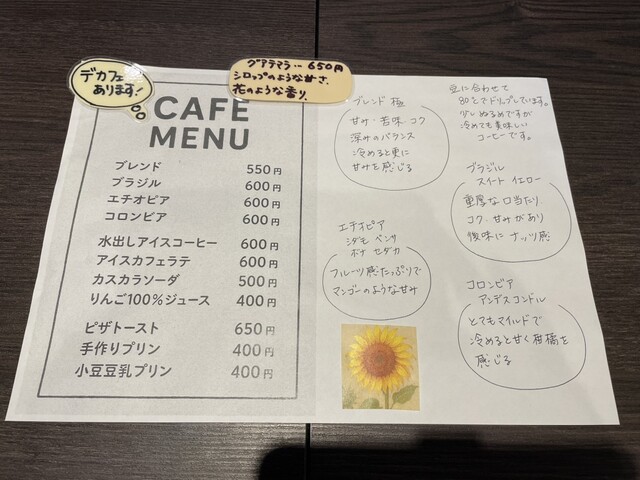 デカフェ
あります!
グアテマラ… 650円
シロップのような甘さ、
花のような香り、
CAFE
MENU
ブレンド 550円
ブラジル 600円
エチオピア 600円
コロンビア 600円
水出しアイスコーヒー 600円
アイスカフェラテ 600円
カスカラソーダ 500円
りんご100%ジュース 400円
ピザトースト 650円
手作りプリン 400円
小豆豆乳プリン 400円
ブレンド 極
甘み・苦味・コク
深みのバランス
冷めると更に
甘みを感じる
エチオピア
シダモ ベンサ
ボナ セダカ
フルーツ感たっぷりで
マンゴーのような甘み
豆に合わせて
80℃でドリップしています。
少しぬるめですが
冷めても美味しい
コーヒーです。
ブラジル
スイート イエロー
重厚な口当たり、
コク・甘みがあり
後味に ナッツ感
コロンビア
アンデスコンドル
とてもマイルドで
冷めると甘く柑橘を
感じる